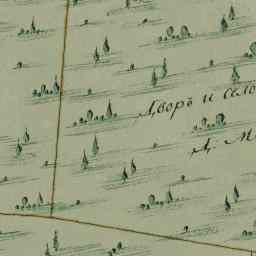 Дворъ и село
д. М